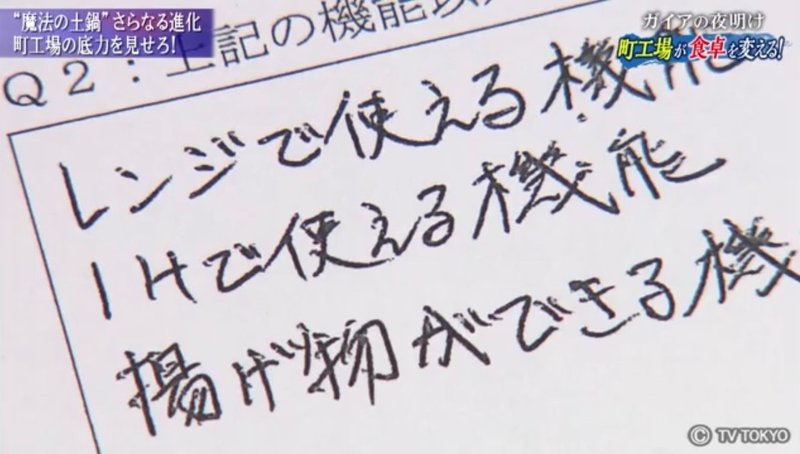 “魔法の土鍋”さらなる進化
町工場の底力を見せろ!
ガイアの夜明け
町工場が食卓を変える!
Q2:上記の機能以
レンジで使える機能
IHで使える機能
揚げ物ができる機
© TV TOKYO